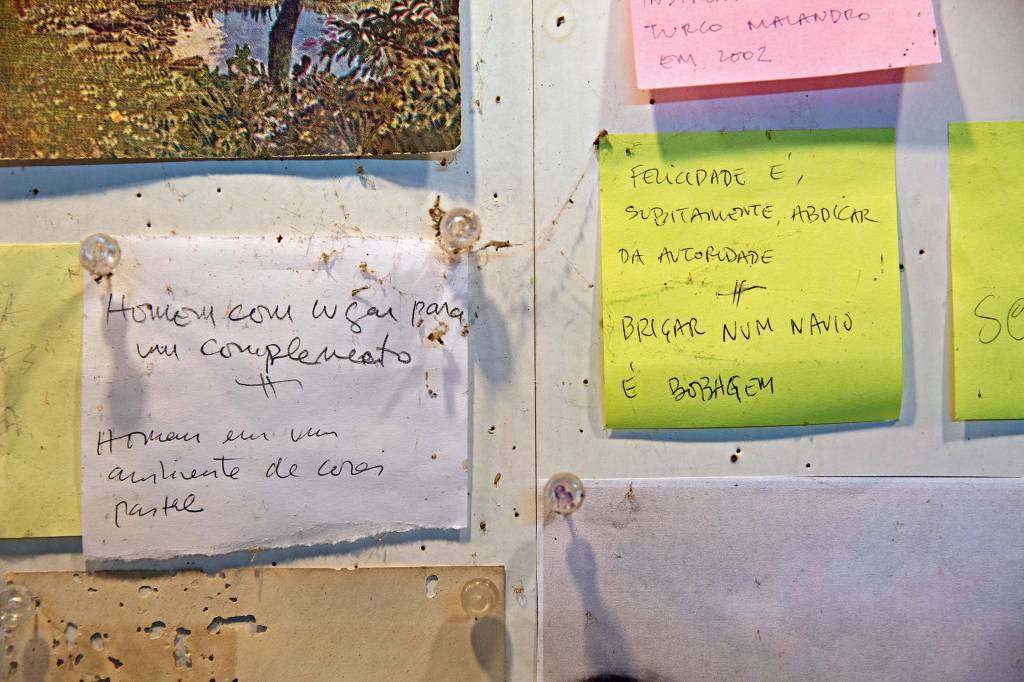 TURCO MALANDRO
EM 2002
FELICIDADE É,
SUBITAMENTE, ABDICAR
DA AUTORIDADE
#
BRIGAR NUM NAVIO
É BOBAGEM
Homem com lugar para
um complemento
#
Homem em um
ambiente de cores
pastel